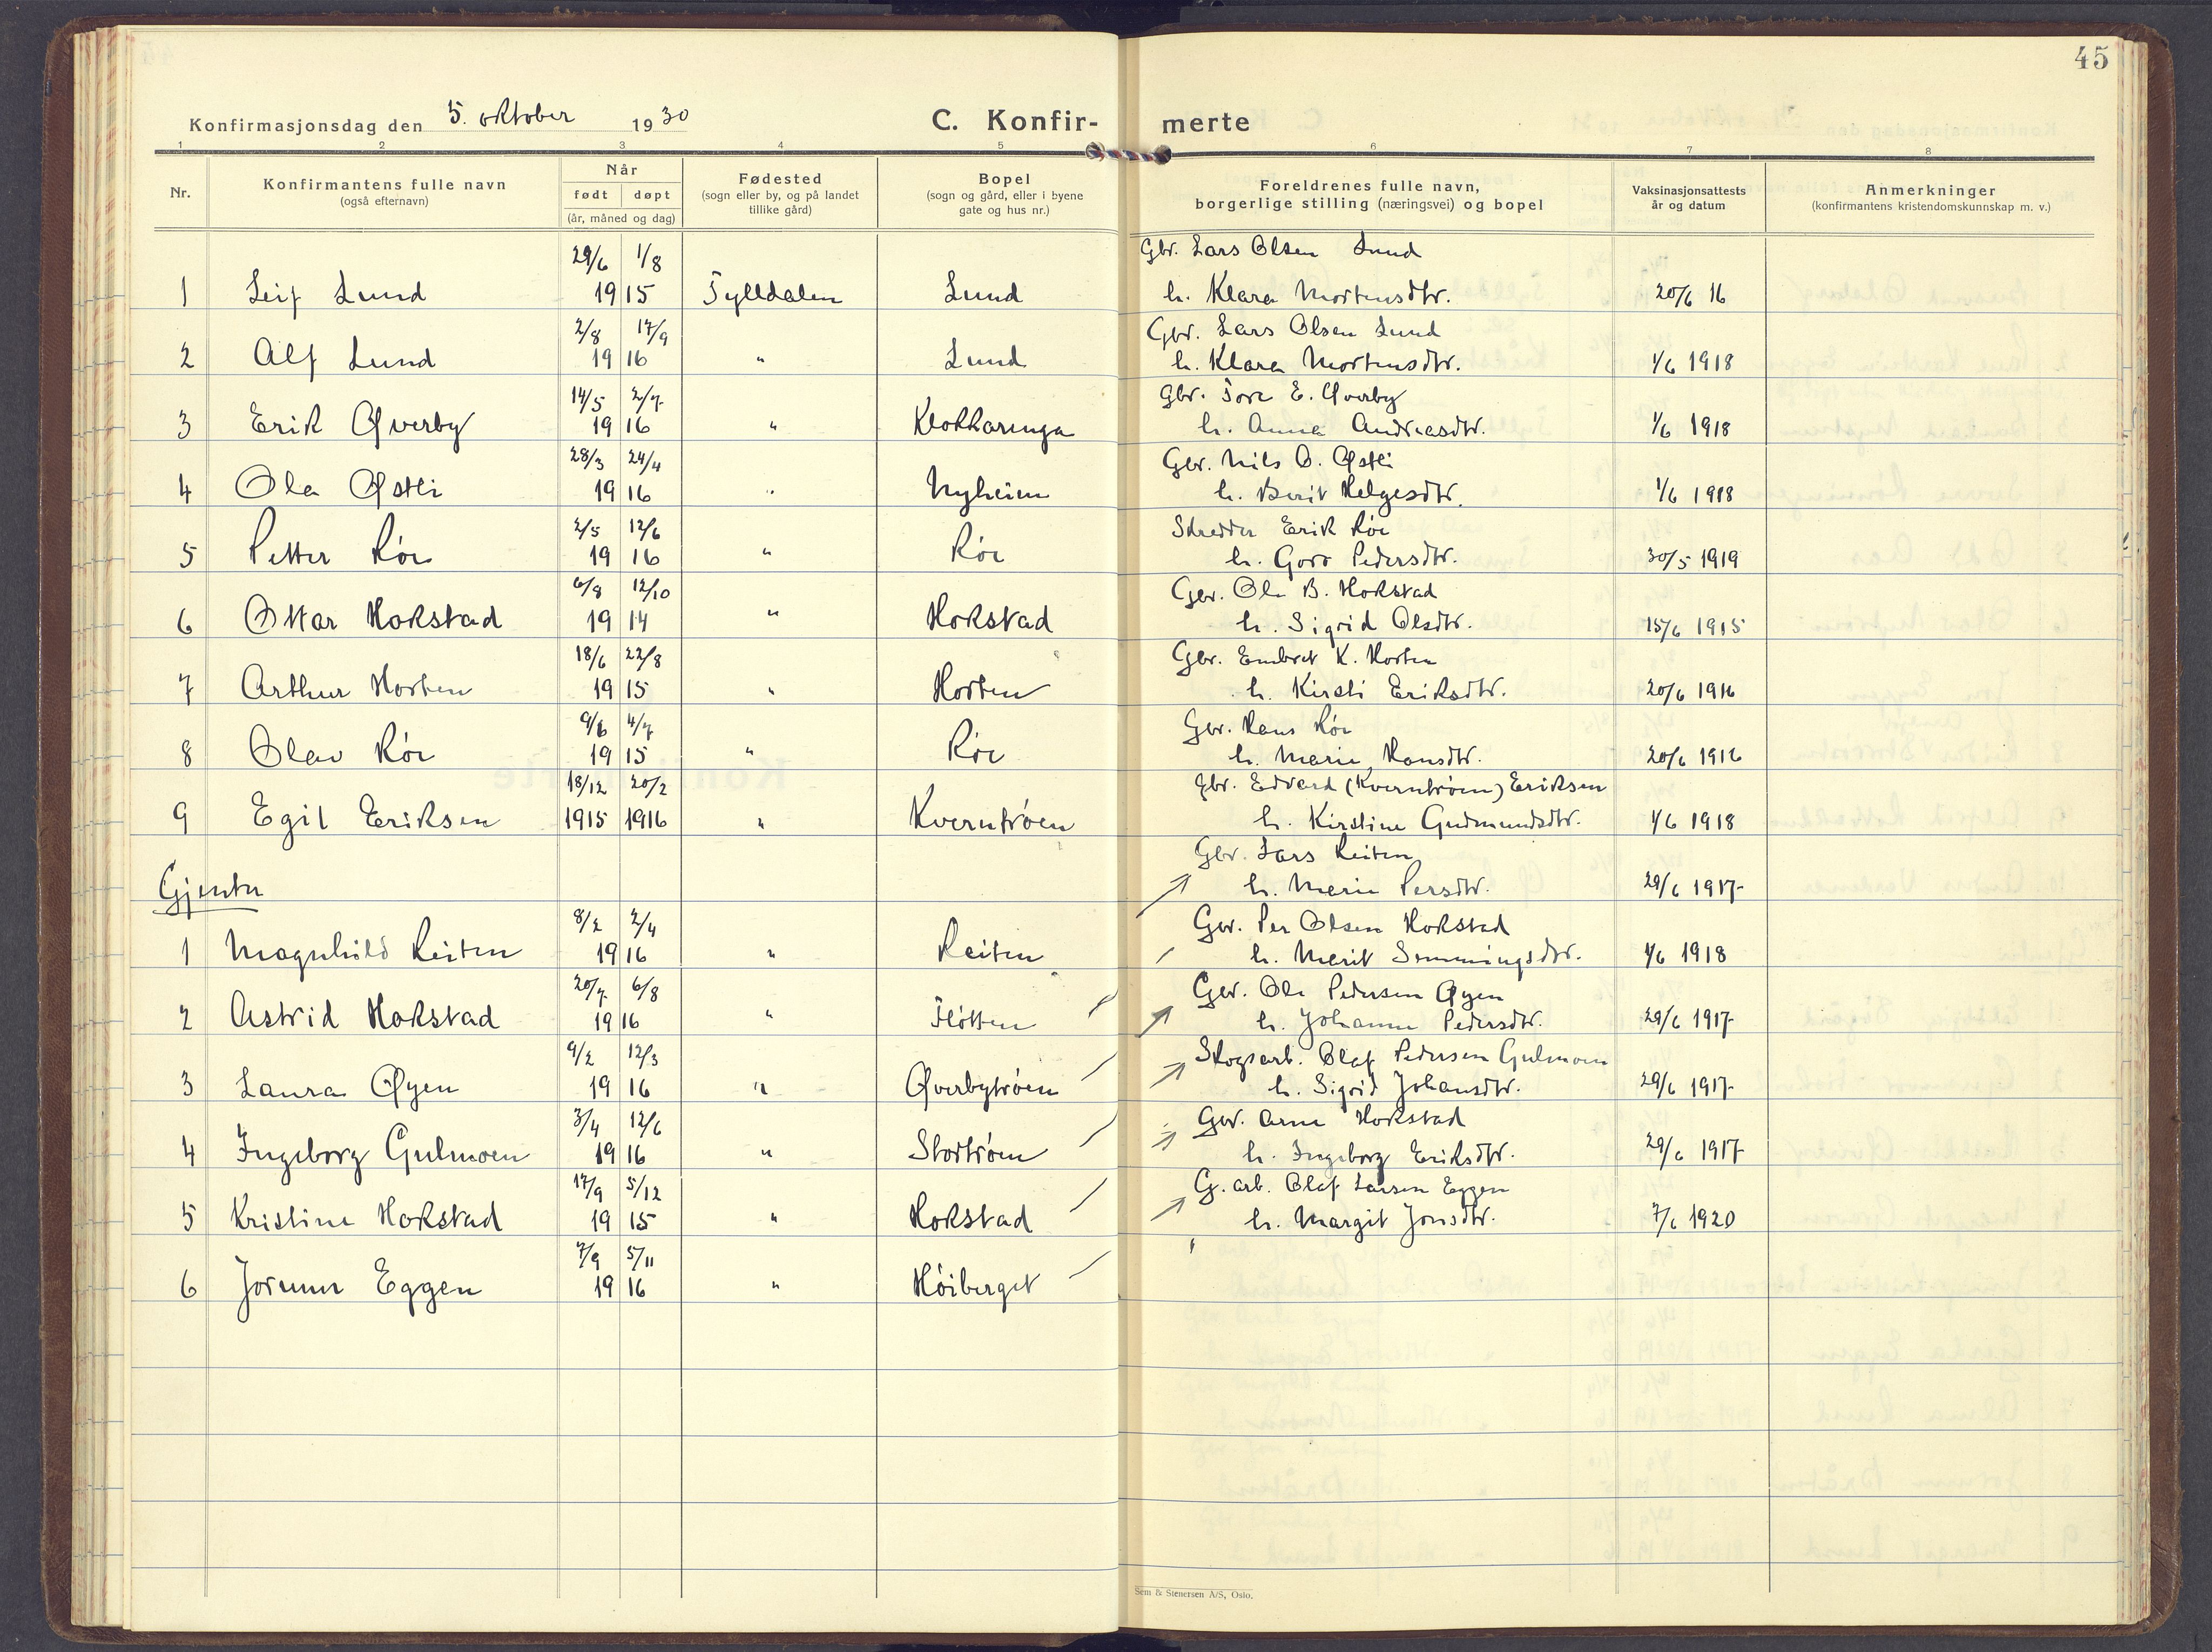 45
Konfirmasjonsdag den 5. oktober 1930
C. Konfir- merte
1 2 3 4 5 6 7 8
Nr.
Konfirmantens fulle navn
(også efternavn)
Når
født døpt
(år, måned og dag)
Fødested
(sogn eller by, og på landet
tillike gård)
Bopel
(sogn og gård, eller i byene
gate og hus nr.)
Foreldrenes fulle navn,
borgerlige stilling (næringsvei) og bopel
Vaksinasjonsattests
år og datum
Anmerkninger
(konfirmantens kristendomskunnskap m. v.)
29/6 1/8 Gbr. Lars Olsen Lund
1 Leif Lund 19 15 Tylldalen Lund h. Klara Mortensdtr. 20/6 16
2/8 17/9 Gbr. Lars Olsen Lund
2 Alf Lund 19 16 " Lund h. Klara Mortensdtr. 1/6 1918
14/5 2/7 Gbr. Tore E. Øverby
3 Erik Øverby 19 16 " Klokkaringa h. Anna Andreasdtr. 1/6 1918
28/3 24/4 Gbr. Nils O. Østli
4 Ola Østli 19 16 " Nyheim h. Berit Helgesdtr. 1/6 1918
2/5 12/6 Skredder Erik Røe
5 Petter Røe 19 16 " Røe h. Goro Pedersdtr. 30/5 1919
6/8 12/10 Gbr. Ole B. Hokstad
6 Ottar Hokstad 19 14 " Hokstad h. Sigrid Olsdtr. 15/6 1915
18/6 22/8 Gbr. Embret K. Horten
7 Arthur Horten 19 15 " Horten h. Kirsti Eriksdtr. 20/6 1916
9/6 4/7 Gbr. Hans Røe
8 Olav Røe 19 15 " Røe h. Marie Hansdtr. 20/6 1916
18/12 20/2 Gbr. Edvard (Kverntrøen) Eriksen
9 Egil Eriksen 1915 1916 " Kverntrøen h. Kirstine Gudmundsdtr. 1/6 1918
Gbr. Lars Reiten
Gjenter h. Marie Persdtr. 29/6 1917
8/2 2/4 Gbr. Per Olsen Hokstad
1 Magnhild Reiten 19 16 " Reiten h. Marit Semmingsdtr. 1/6 1918
20/7 6/8 Gbr. Ole Pedersen Øyen
2 Astrid Hokstad 19 16 " Fløtten h. Johanne Pedersdtr. 29/6 1917
9/2 12/3 Skogsarb. Olaf Pedersen Gulmoen
3 Laura Øyen 19 16 " Øverbytrøen h. Sigrid Johansdtr. 29/6 1917
3/4 12/6 Gbr. Arne Hokstad
4 Ingeborg Gulmoen 19 16 " Stortrøen h. Ingeborg Eriksdtr. 29/6 1917
17/9 5/12 G. arb. Olaf Larsen Eggen
5 Kristine Hokstad 19 15 " Hokstad h. Margit Jonsdtr. 7/6 1920
7/9 5/11
6 Jorunn Eggen 19 16 " Høiberget
Sem & Stenersen A/S, Oslo.